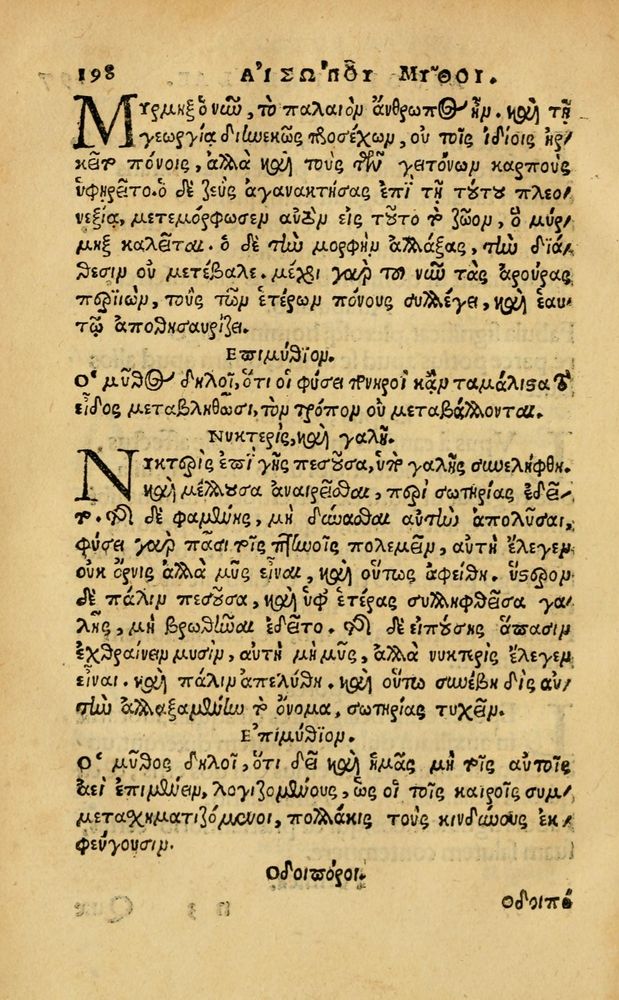 198 ΑἸΣΩΠΟΥ ΜΥ͂ΘΟΙ.
Μύρμηξ ὁ νῦν, τὸ παλαιὸν ἄνθρωπος ἦν. καὶ τῇ
γεωργίᾳ διηνεκῶς προσέχων, οὐ τοῖς ἰδίοις ἠρ-
κεῖτο πόνοις, ἀλλὰ καὶ τοὺς τῶν γειτόνων καρποὺς
ὑφῃρεῖτο. ὁ δὲ ζεὺς ἀγανακτήσας ἐπὶ τῇ τούτου πλεο-
νεξίᾳ, μετεμόρφωσεν αὐτὸν εἰς τοῦτο τὸ ζῶον, ὃ μύρ-
μηξ καλεῖται. ὁ δὲ τὴν μορφὴν ἀλλάξας, τὴν διά-
θεσιν οὐ μετέβαλε. μέχρι γὰρ τοῦ νῦν τὰς ἀρούρας
περιϊὼν, τοὺς τῶν ἑτέρων πόνους συλλέγει, καὶ ἑαυ-
τῷ ἀποθησαυρίζει.
Επιμύθιον.
Ο μῦθος δηλοῖ, ὅτι οἱ φύσει πονηροὶ κἂν ταμάλιστα τὸ
εἶδος μεταβληθῶσι, τὸν τρόπον οὐ μεταβάλλονται.
Νυκτερὶς, καὶ γαλῆ.
Νυκτερὶς ἐπὶ γῆς πεσοῦσα, ὑπὸ γαλῆς συνελήφθη.
καὶ μέλλουσα ἀναιρεῖσθαι, περὶ σωτηρίας ἐδεῖ-
το. τῆς δὲ φαμένης, μὴ δύνασθαι αὐτὴν ἀπολῦσαι,
φύσει γὰρ πᾶσι τοῖς πτηνοῖς πολεμεῖν, αὐτὴ ἔλεγεν
οὐκ ὄρνις ἀλλὰ μῦς εἶναι, καὶ οὕτως ἀφείθη. ὕστερον
δὲ πάλιν πεσοῦσα, καὶ ὑφ' ἑτέρας συλληφθεῖσα γα-
λῆς, μὴ βρωθῆναι ἐδεῖτο. τῆς δὲ εἰπούσης ἅπασιν
ἐχθραίνειν μυσὶν, αὐτὴ μὴ μῦς, ἀλλὰ νυκτερὶς ἔλεγεν
εἶναι. καὶ πάλιν ἀπελύθη. καὶ οὕτω συνέβη δὶς αὐ-
τὴν ἀλλαξαμένην τὸ ὄνομα, σωτηρίας τυχεῖν.
Επιμύθιον.
Ο μῦθος δηλοῖ, ὅτι δεῖ καὶ ἡμᾶς μὴ τοῖς αὐτοῖς
ἀεὶ ἐπιμένειν, λογιζομένους, ὡς οἱ τοῖς καιροῖς συμ-
μετασχηματιζόμενοι, πολλάκις τοὺς κινδύνους ἐκ-
φεύγουσιν.
Οδοιπόροι.
Οδοιπό